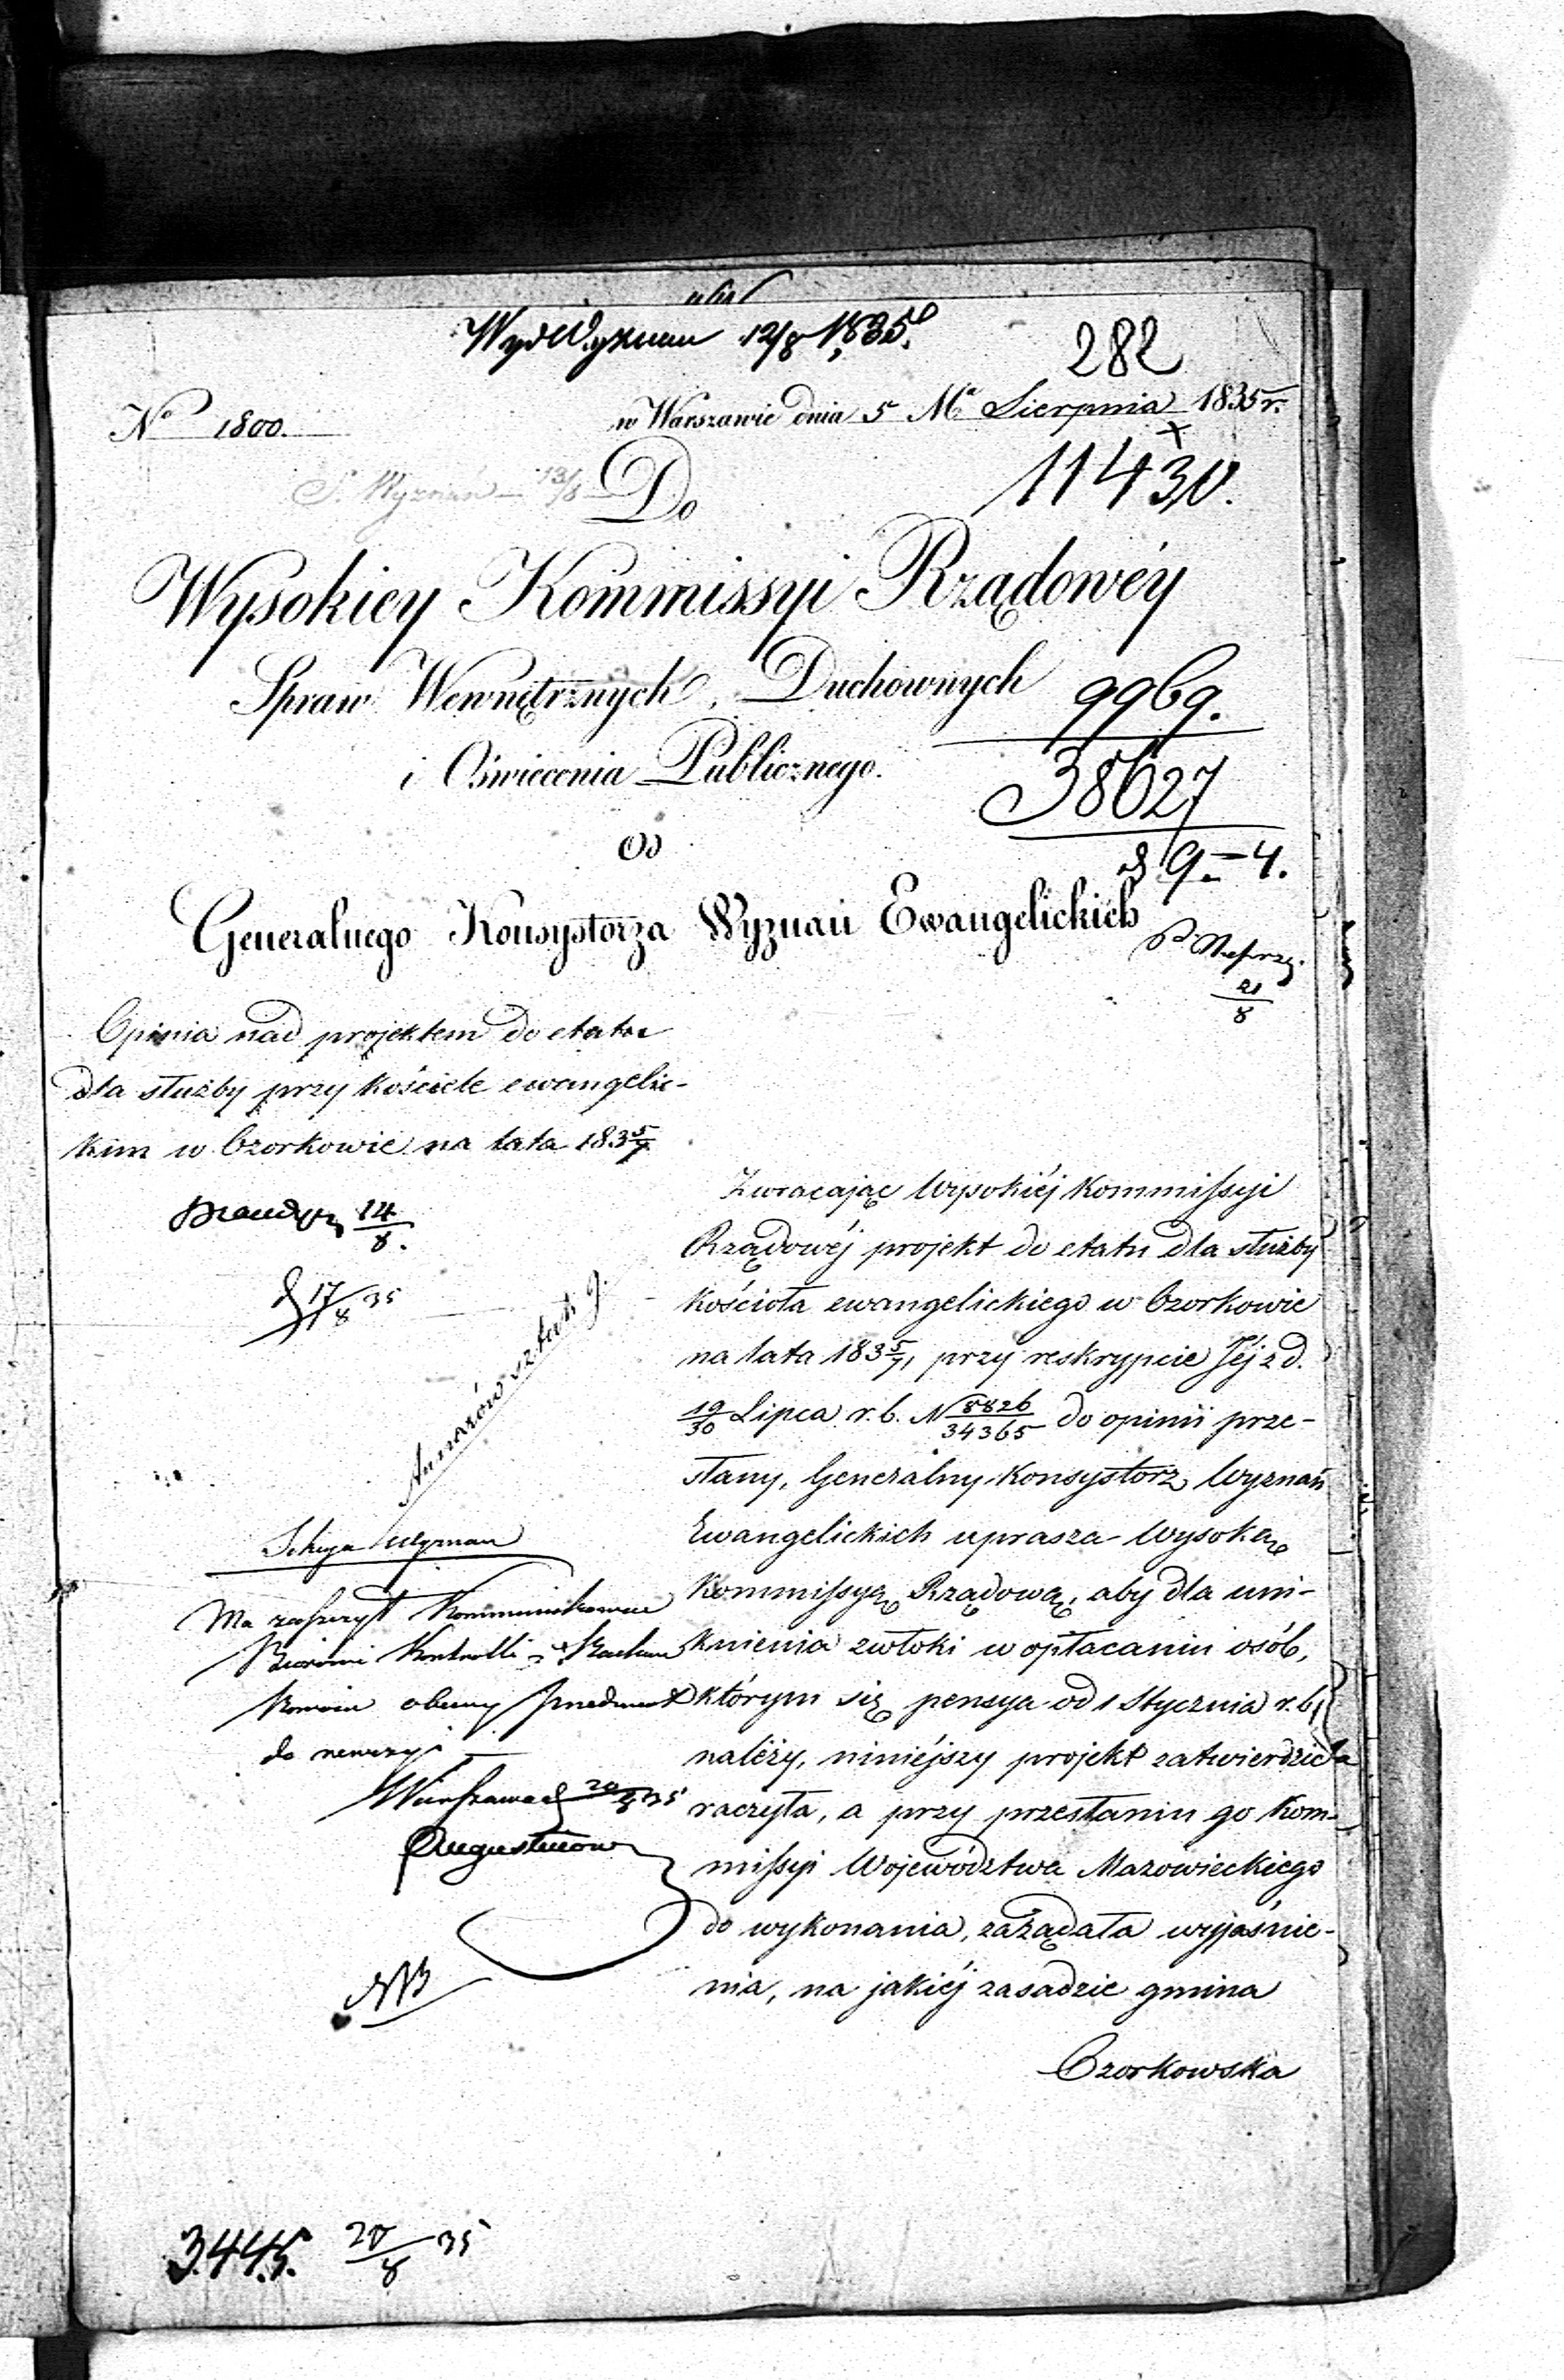 Wyd Wyznan 12/8 1835.
282
No 1800.
w Warszawie dnia 5 Ma Sierpnia 1835 r.
S. Wyznań 13/8
Do
11430.
Wysokiey Kommissyi Rządowéy
Spraw Wewnętrznych, Duchownych
9969.
i Oświecenia Publicznego.
38627
Od
d 9 - 4.
Generalnego Konsystorza Wyznań Ewangelickich
21/8
Opinia nad projektem do etatu
dla służby przy kościele ewangelic-
kim w Ozorkowie na lata 183 5/7
14/8.
d 17/8 35
Zwracając Wysokiéj Kommissyi
Rządowéj projekt do etatu dla służby
kościoła ewangelickiego w Ozorkowie
na lata 183 5/7, przy reskrypcie Jéj z d.
19/30 Lipca r. b. N 8826/34365 do opinii prze-
słany, Generalny Konsystorz Wyznań
Ewangelickich uprasza Wysoką
Kommissyą Rządową, aby dla uni-
knienia zwłoki w opłacaniu osób,
którym się pensya od 1 Stycznia r. b.
należy, niniéjszy projekt zatwierdzić
raczyła, a przy przesłaniu go Kom-
missyi Województwa Mazowieckiego
do wykonania, zażądała wyjaśnie-
nia, na jakiéj zasadzie gmina
Ozorkowska
Arkuszów sztuk 9.
Sekcya Wyznan
Ma zaszczyt kommunikowac
Biorowi Kontrolli
obecny przedmiot
do rewizyi
Warszawa d 20/8 35
Augustinow
NB
3445. 20/8 35